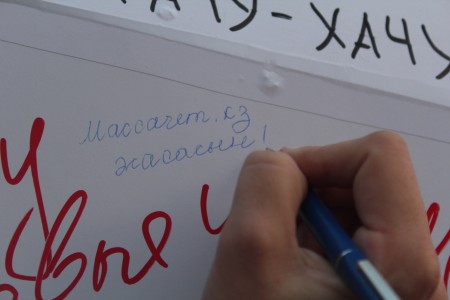 ХАЧУ-ХАЧУ
Массачет.кз
жасасын!
у
вые